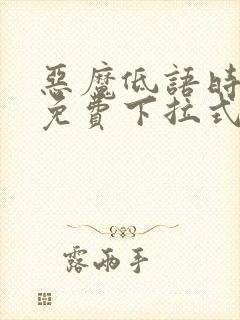 惡魔低語時
免費下拉式
露兩手